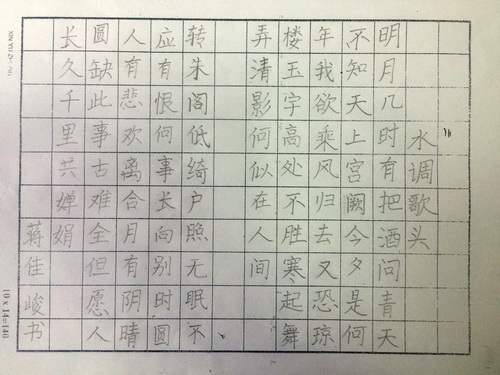 水调歌头
明月几时有把酒问青天
不知天上宫阙今夕是何
年我欲乘风归去又恐琼
楼玉宇高处不胜寒起舞
弄清影何似在人间
转朱阁低绮户照无眠不
应有恨何事长向别时圆
人有悲欢离合月有阴晴
圆缺此事古难全但愿人
长久千里共婵娟
蒋佳峻书
10 x 14=140